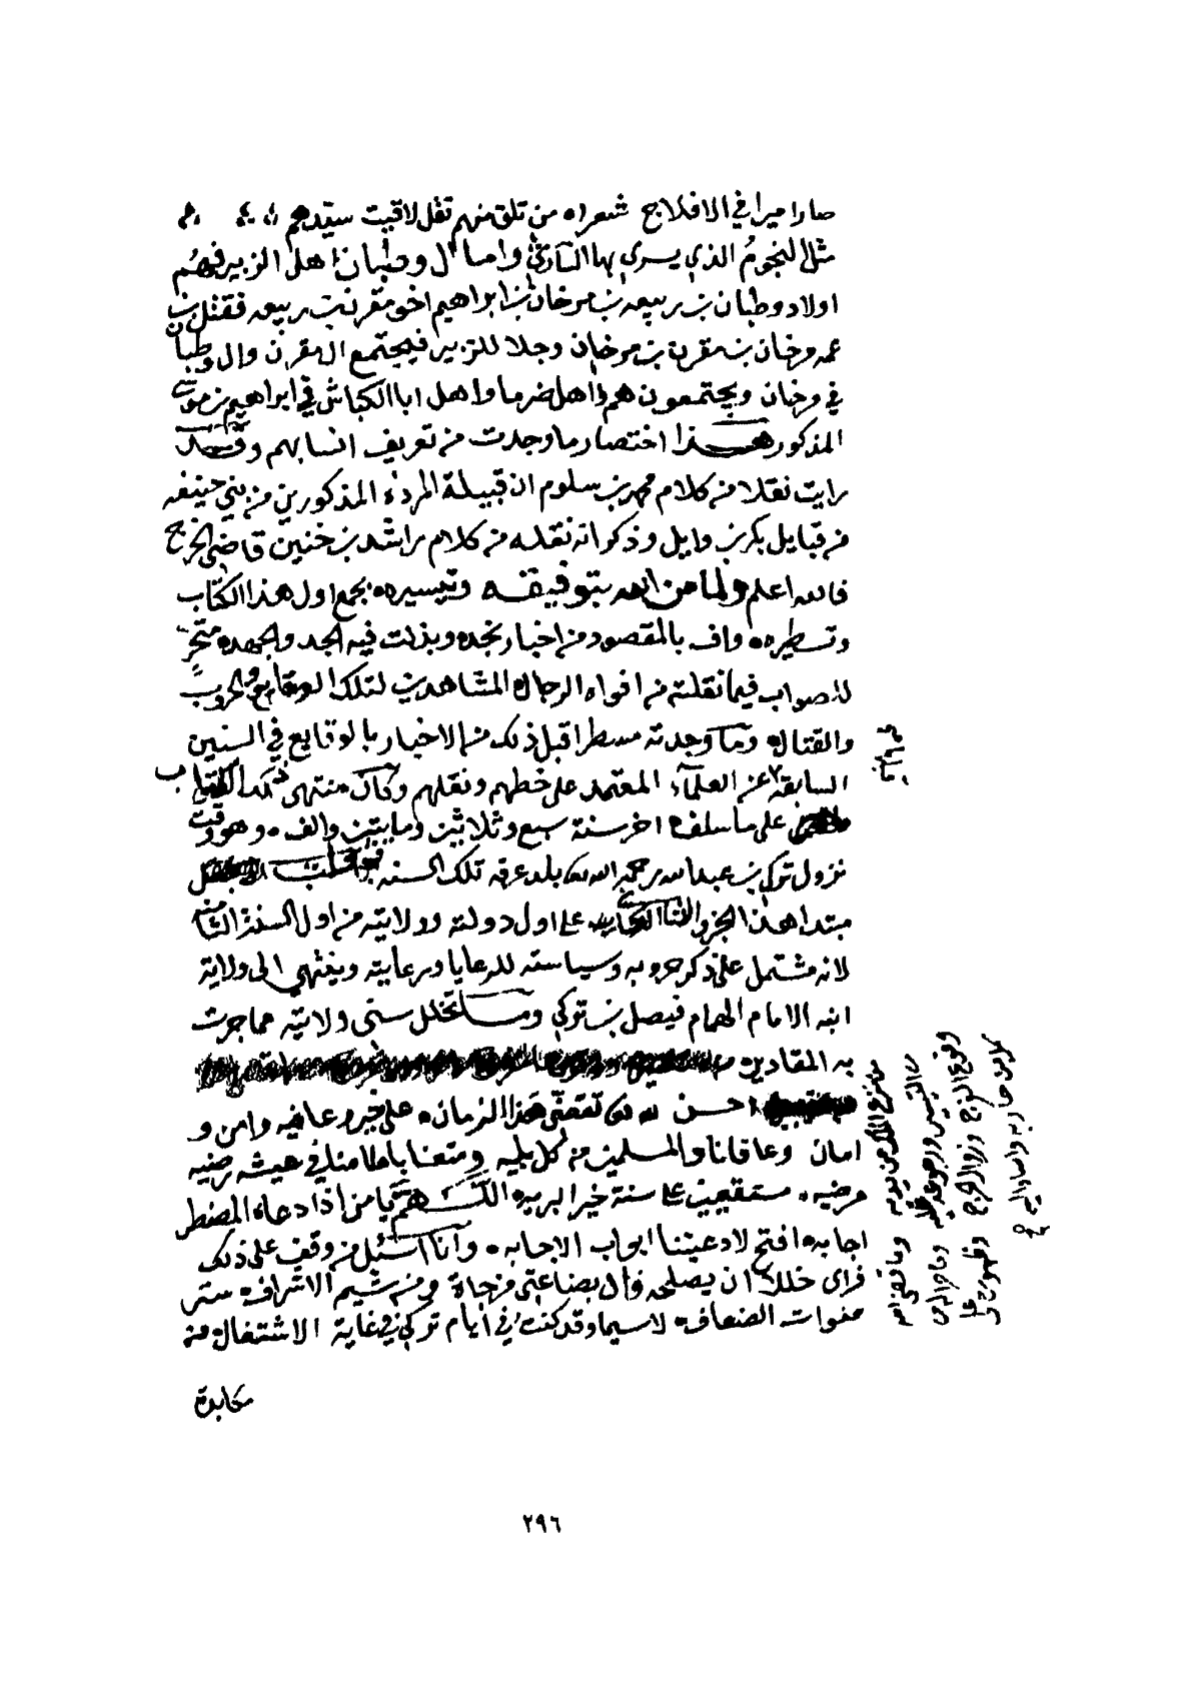 صار اميرا في الافلاج شعرا ه من تلق منهم تقل لاقيت سيدهم
مثل النجوم الذي يسري بها الساري واما ال وطبان اهل الزبير فهم
اولاد وطبان بن ربيعه بن مرخان بن ابراهيم اخو مقرن بن ربيعه فقتل بن
عمه مرخان بن مقرن بن مرخان وجلا للزبير فيجتمع ال مقرن وال وطبان
في مرخان ويجتمعون هم واهل ضرما واهل ابا الكباش في ابراهيم بن موسى
المذكور هذا اختصار ما وجدت من تعريف انسابهم وقد
رايت نقلا من كلام محمد بن سلوم ان قبيلة المردة المذكورين من بني حنيفه
من قبايل بكر بن وايل وذكر انه نقله من كلام راشد بن خنين قاضي الخرج
فالله اعلم ولما من الله بتوفيقه وتيسيره بجمع اول هذا الكتاب
وتسطيره واف بالمقصود من اخبار نجده وبذلت فيه الجد والجهد متحر
للصواب فيما نقلته من افواه الرجال المشاهدين لتلك الوقايع والحروب
والقتال وما وجدته مسطرا قبل ذلك من الاخبار بالوقايع في السنين
السابقة عن العلماء المعتمد على خطهم ونقلهم وكان منتهى ذلك الكتاب
على ما سلف اخر سنة سبع وثلاثين ومايتين والف وهو وقت
نزول تركي بن عبد الله رحمه الله تعالى بلد عرقه تلك السنه
مبتدا هذا الجزو الثاني على اول دولته وولايته من اول السنة الثامنه
لانه مشتمل على ذكر حروبه وسياسته للرعايا ورعايته وينتهي الى ولاية
ابنه الامام الهمام فيصل بن تركي وما تخلل سنى ولايته مما جرت
به المقادير
احسن الله تعالى تقضى هذا الزمان على خير وعافيه وامن و
امان وعافانا والمسلمين من كل بليه ومتعنا باطامنا في عيشه رضيه
مرضيه مستقيمين على سنة خير البريه اللهم يا من اذا دعاه المضطر
اجابه افتح لادعيتنا ابواب الاجابه وانا اسئل من وقف على ذلك
فراى خللا ان يصلحه فان بضاعتي مزجاة ومن شيم الاشراف ستر
هفوات الضعاف لاسيما وقد كنت في ايام تركي في غاية الاشتغال من
مكابدة
من نزع الملك من يديه وما
وقوع الهرج
كلا من حاربه واساء اليه
٢٩٦